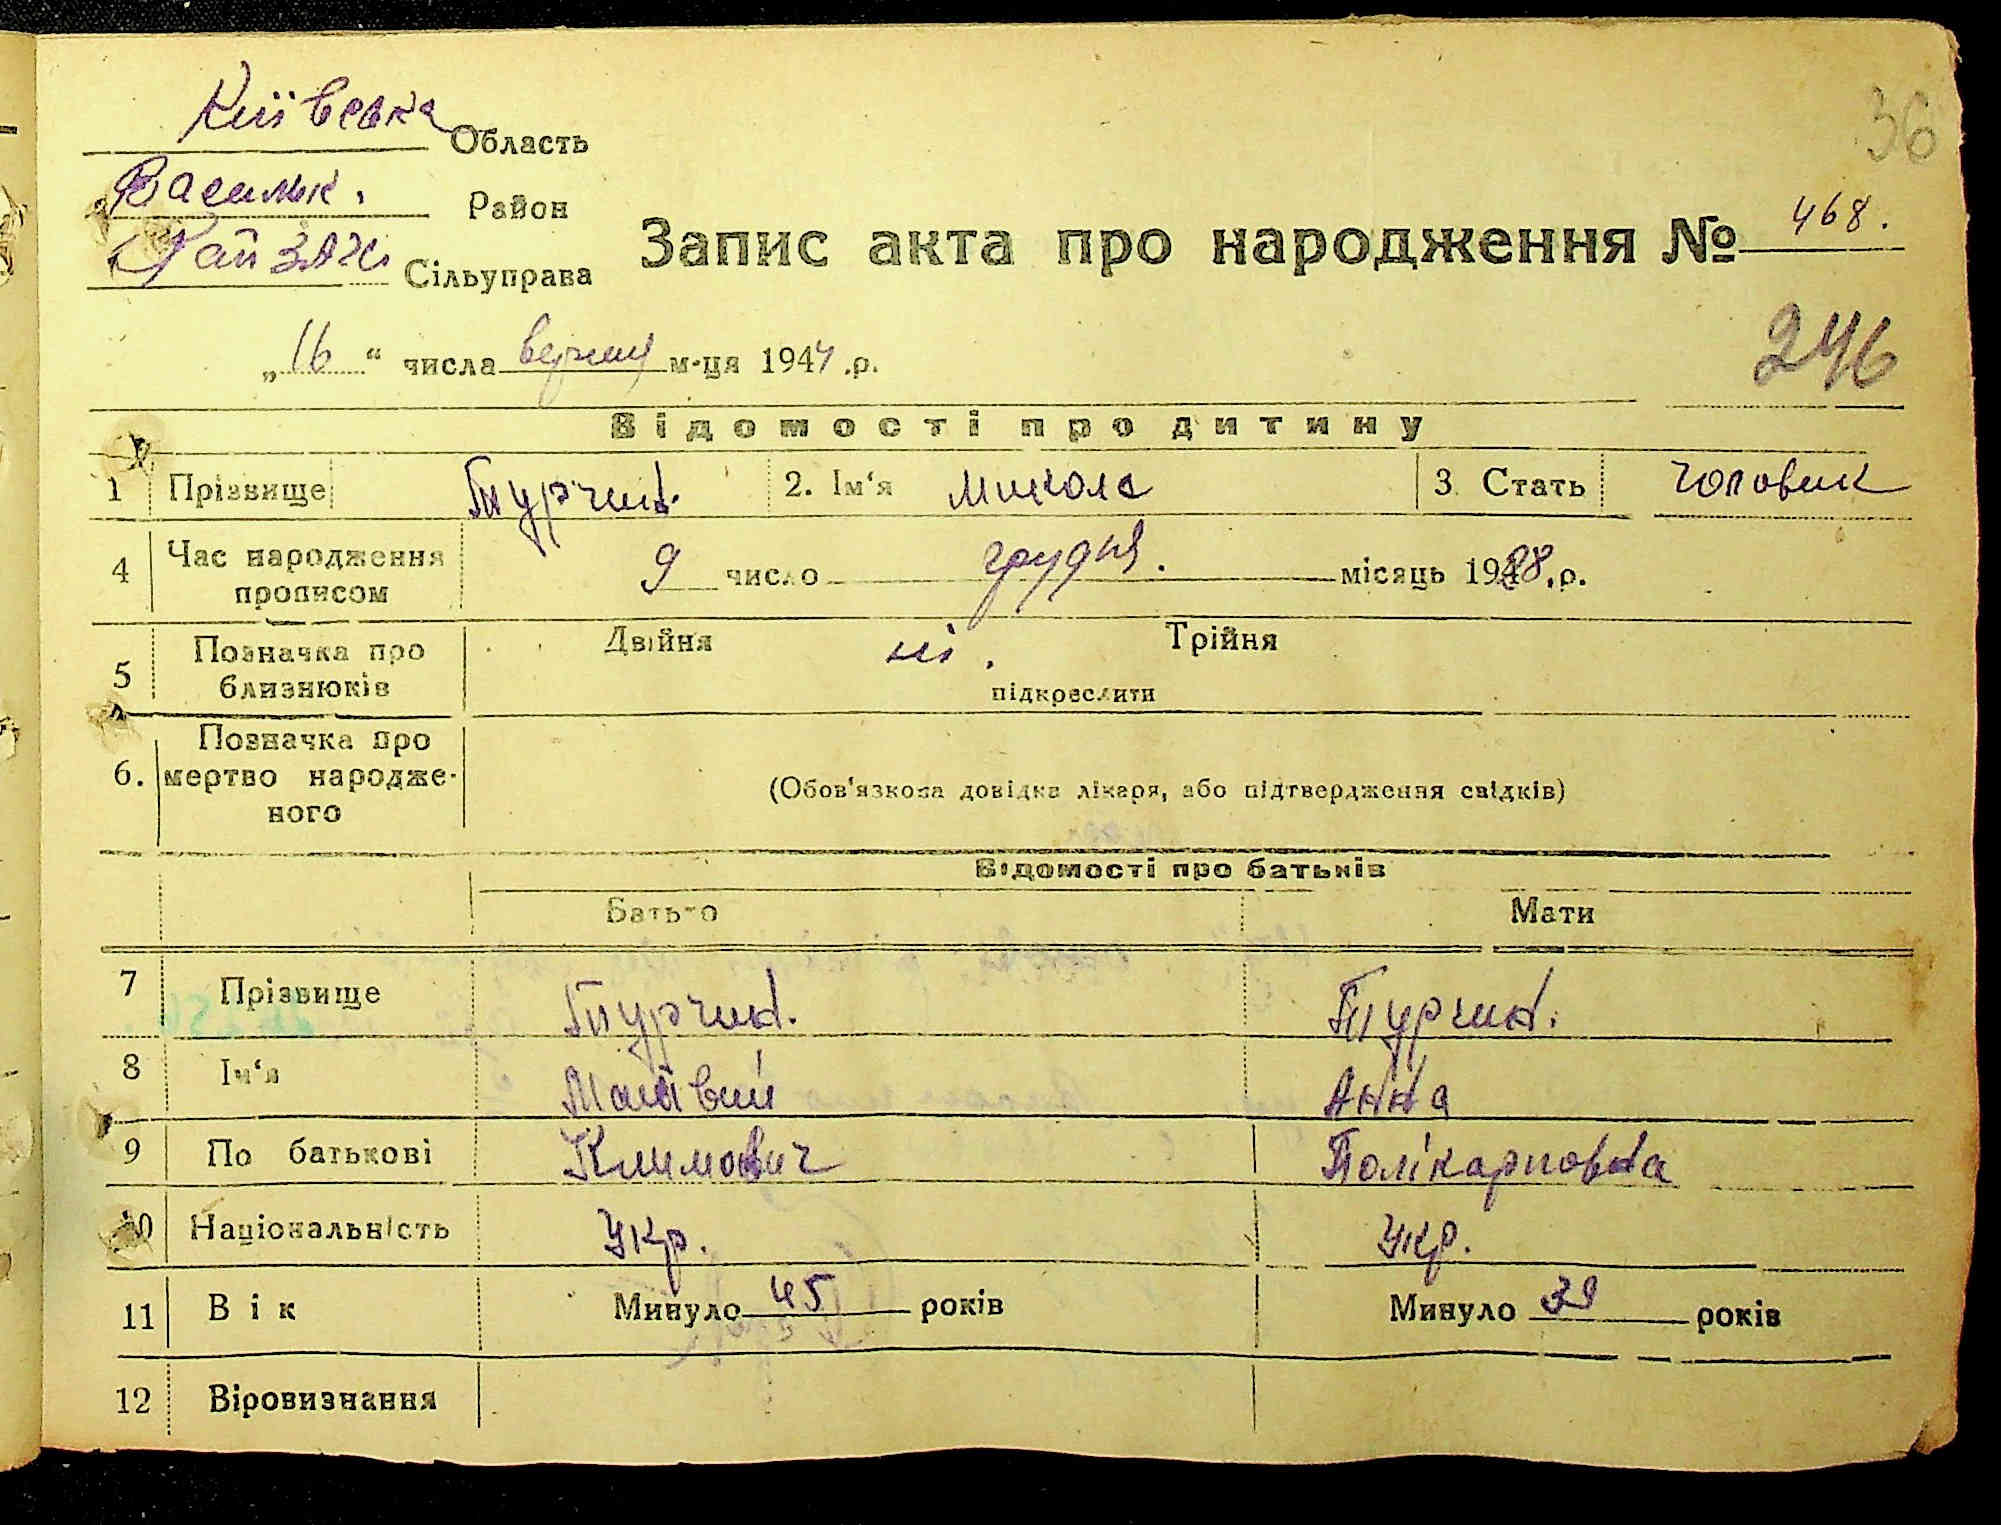 36
Київська Область
Васильк. Район
РайЗАГС Сільуправа
Запис акта про народження № 468.
„16“ числа вересня м-ця 1944 .р.
246
Відомості про дитину
1 Прізвище Турчин. 2. Ім‘я Микола 3. Стать чоловік
4 Час народження прописом 9 число грудня. місяць 1928.р.
5 Позначка про близнюків Двійня ні. Трійня
підкреслити
6. Позначка про мертво народженого
(Обов'язкова довідка лікаря, або підтвердження свідків)
Відомості про батьків
Батько Мати
7 Прізвище Турчин. Турчин.
8 Ім‘я Матвій Анна
9 По батькові Климович Полікарповна
10 Національність Укр. Укр.
11 Вік Минуло 45 років Минуло 39 років
12 Віровизнання